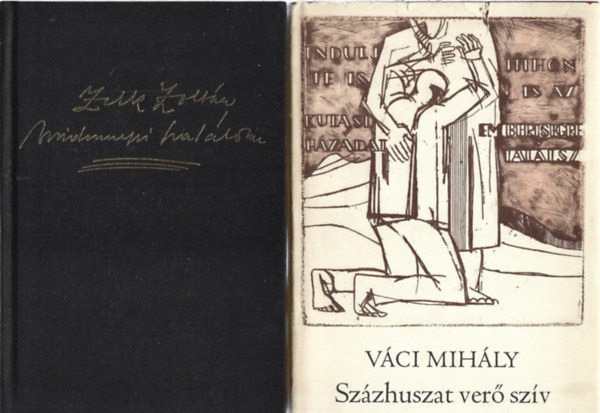 Zelk Zoltán
Mindennapi halálom
INDULJ
TE IS
KUTASD
HAZÁDAT
ITTHON
IS AZ
EMBERISÉGRE
TALÁLSZ
VÁCI MIHÁLY
Százhuszat verő szív